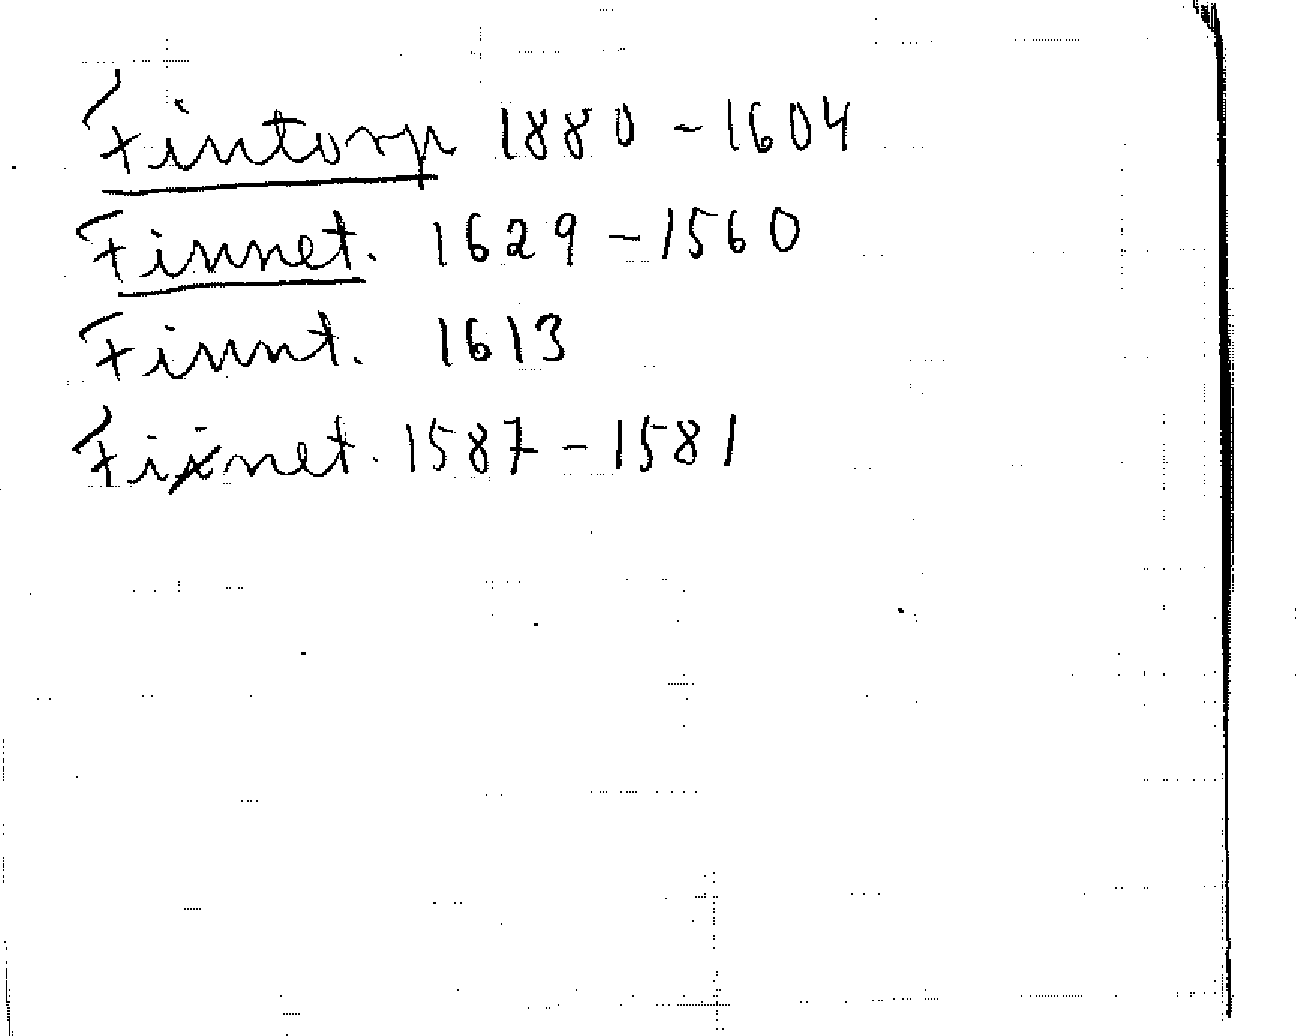 Fintorp 1880 - 1604
Finnet. 1629 - 1560
Finnt. 1613
Finnet. 1587 - 1581